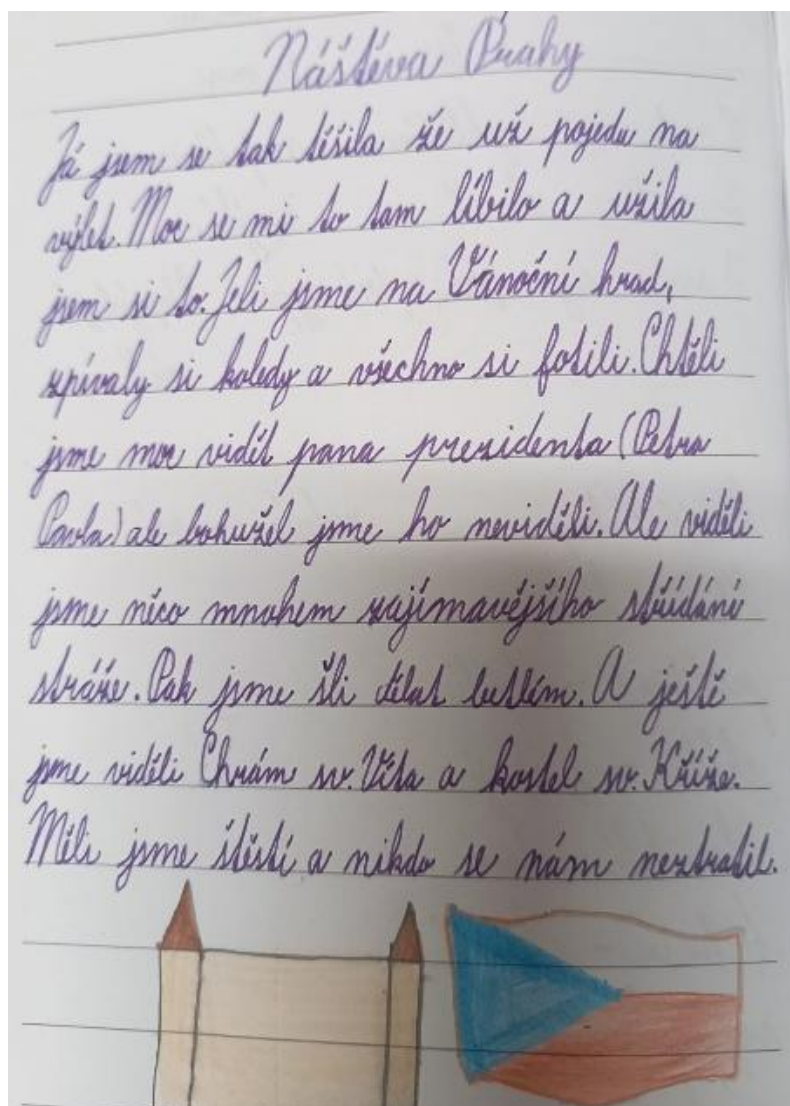 Náštěva Prahy
Já jsem se tak těšila že už pojedu na
výlet. Moc se mi to tam líbilo a užila
jsem si to. Jeli jsme na Vánoční hrad,
zpívaly si koledy a všechno si fotili. Chtěli
jsme moc vidět pana prezidenta (Petra
Pavla) ale bohužel jsme ho neviděli. Ale viděli
jsme něco mnohem zajímavějšího střídání
stráže. Pak jsme šli dělat betlém. A ještě
jsme viděli Chrám sv. Víta a kostel sv. Kříže.
Měli jsme štěstí a nikdo se nám neztratil.